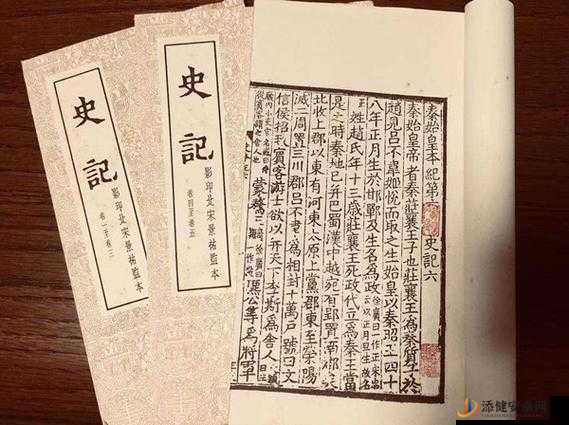 史記
影印北宋景祐監本
卷一至卷三
史記
影印北宋景祐監本
卷四至卷五
秦始皇本紀第 史記六
秦始皇帝者秦莊襄王子也莊襄王為秦質子於
趙見呂不韋姬悅而取之生始皇以秦昭王四十
八年正月生於邯鄲及生名為政徐廣曰一作正宋忠云以正月旦生故名
姓趙氏年十三歲莊襄王死政代立為秦王當
是之時秦地已并巴蜀漢中越宛有郢置南郡矣
北收上郡以東有河東太原上黨郡東至滎陽
滅二周置三川郡呂不韋為相封十萬戶號曰文
信侯招致賓客游士欲以并天下李斯為舍人
蒙驁 徐廣曰一作 麃公等為將軍
添健安卓网